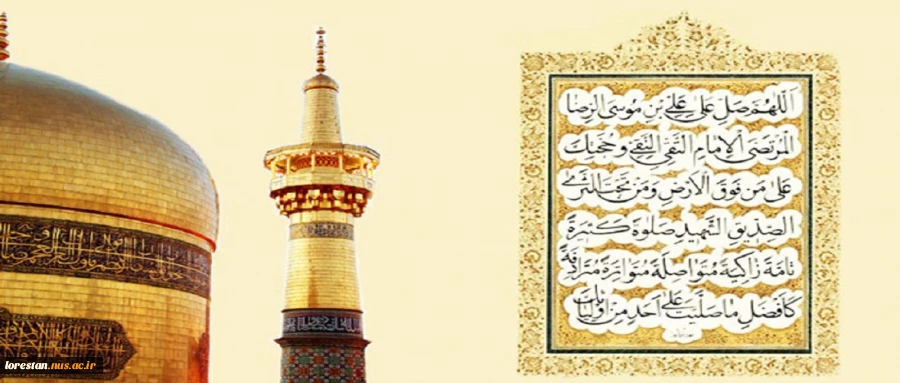 اَللّهُمَّ صَلِّ عَلى عَلِيِّ بْنِ مُوسَى الرِّضَا
المُرْتَضَى الإِمَامِ التَّقِيِّ النَّقِيِّ وَ حُجَّتِكَ
عَلى مَنْ فَوْقَ الأَرْضِ وَ مَنْ تَحْتَ الثَّرى
الصِّدِّيقِ الشَّهِيدِ صَلوةً كَثِيرَةً
تامَّةً زاكِيَةً مُتَواصِلَةً مُتَواتِرَةً مُتَرادِفَةً
كَأَفْضَلِ ما صَلَّيْتَ عَلى أَحَدٍ مِنْ أَوْلِيائِكَ
lorestan.nus.ac.ir